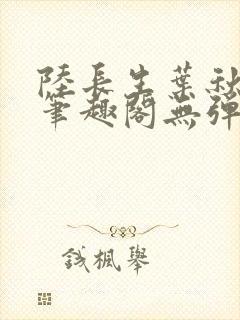 陸長生葉秋
筆趣閣無彈
楓舉